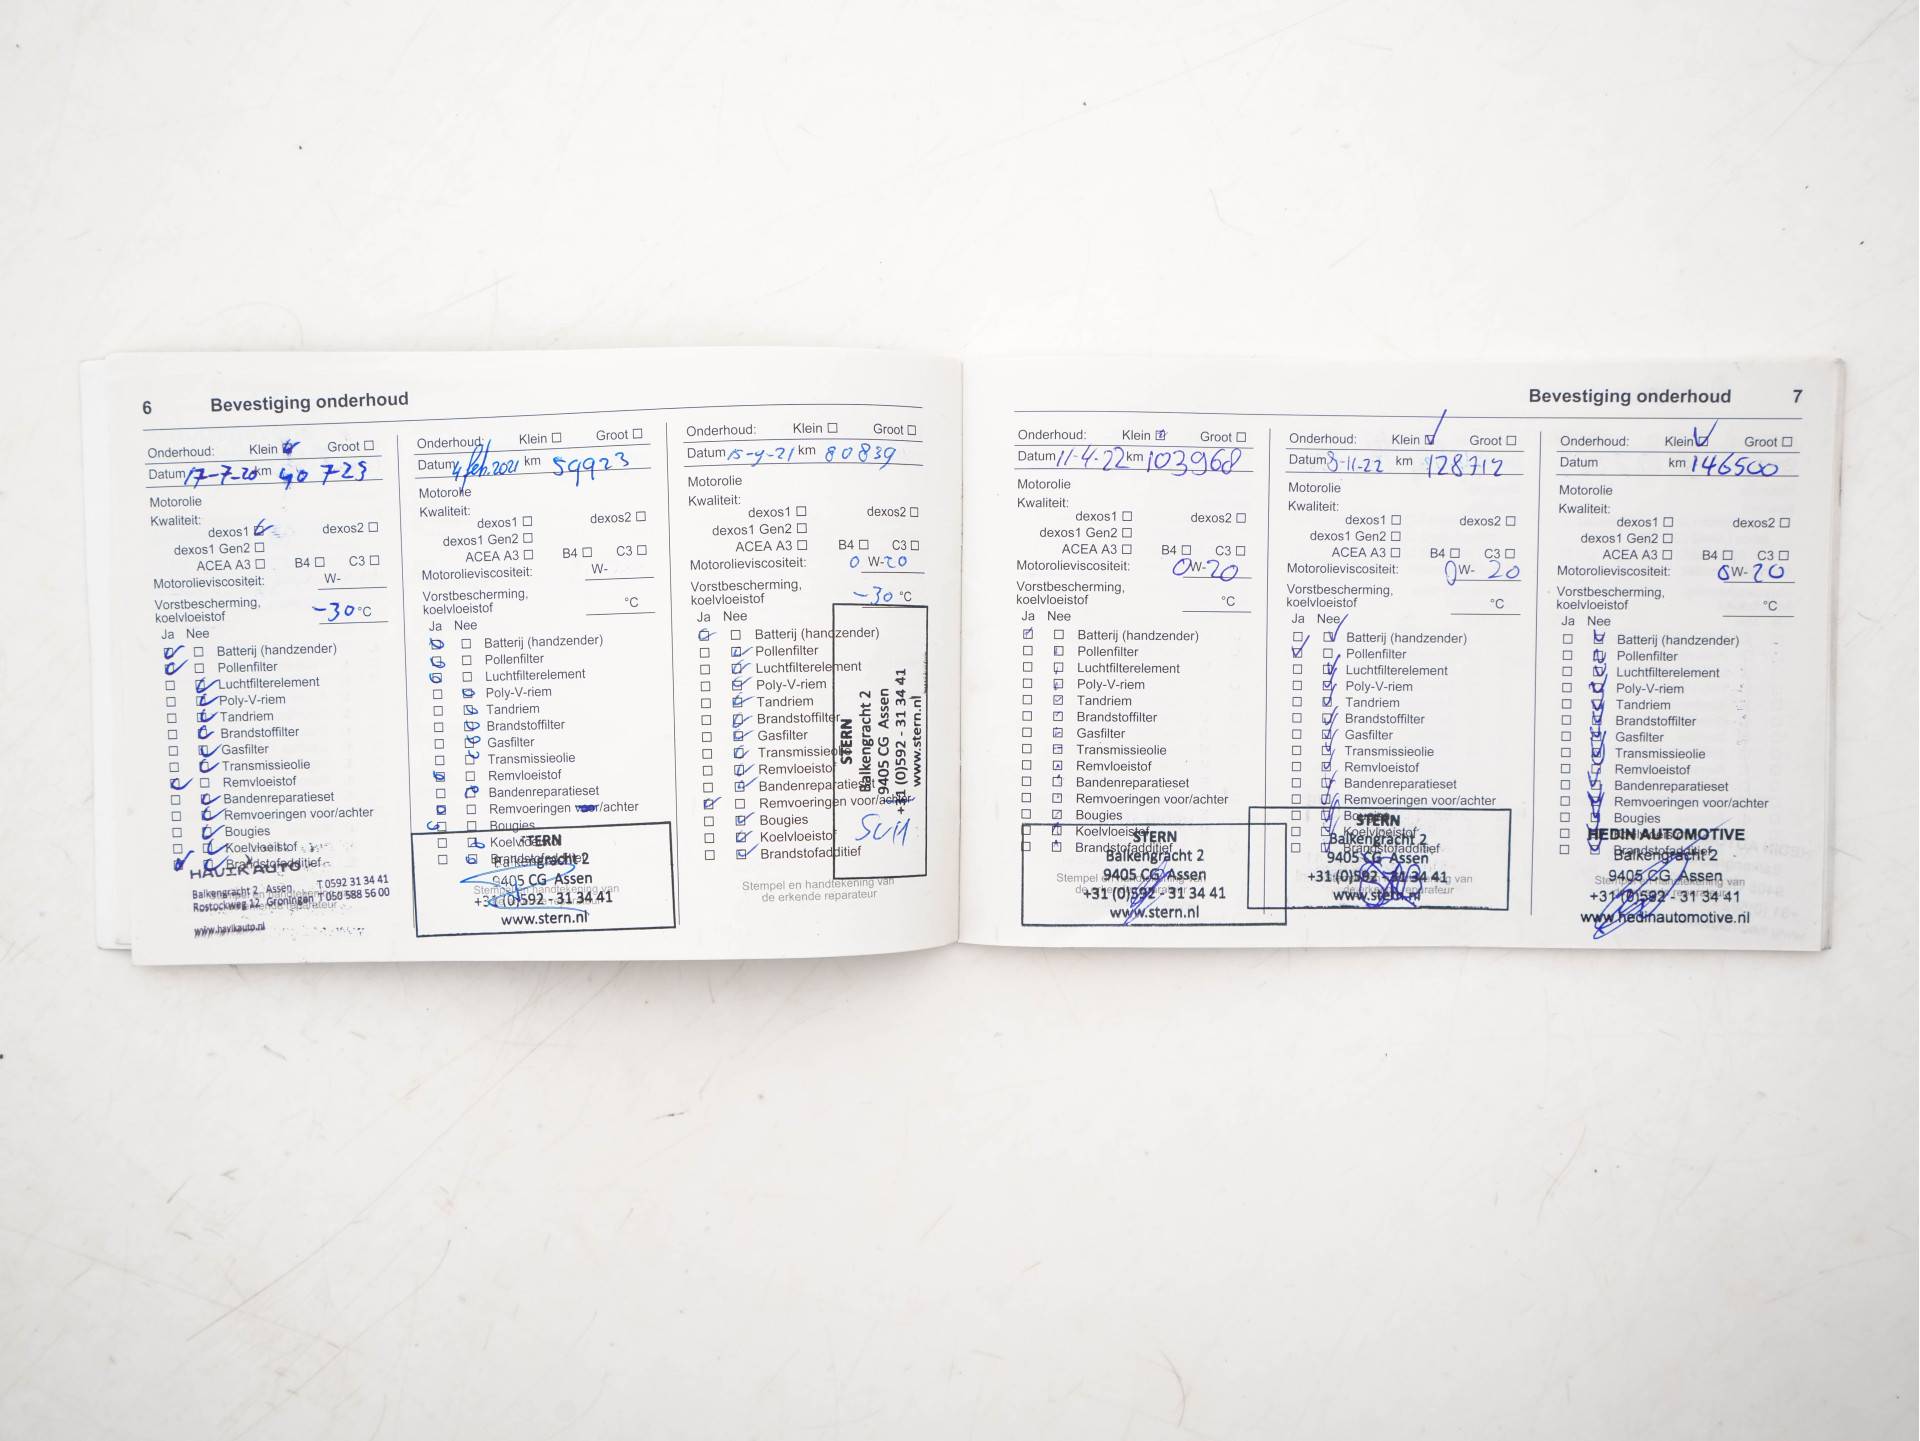 6 Bevestiging onderhoud
Onderhoud: Klein Groot
Datum 17-7-20 km 40 723
Motorolie
Kwaliteit:
dexos1 dexos2
dexos1 Gen2
ACEA A3 B4 C3
Motorolieviscositeit: W-
Vorstbescherming,
koelvloeistof -30 °C
Ja Nee
Batterij (handzender)
Pollenfilter
Luchtfilterelement
Poly-V-riem
Tandriem
Brandstoffilter
Gasfilter
Transmissieolie
Remvloeistof
Bandenreparatieset
Remvoeringen voor/achter
Bougies
Koelvloeistof
Brandstofadditief
HAVIK AUTO
Balkengracht 2 Assen T 0592 31 34 41
Rostockweg 12 Groningen T 050 588 56 00
www.havikauto.nl
Onderhoud: Klein Groot
Datum 4 feb. 2021 km 59923
Motorolie
Kwaliteit:
dexos1 dexos2
dexos1 Gen2
ACEA A3 B4 C3
Motorolieviscositeit: W-
Vorstbescherming,
koelvloeistof °C
Ja Nee
Batterij (handzender)
Pollenfilter
Luchtfilterelement
Poly-V-riem
Tandriem
Brandstoffilter
Gasfilter
Transmissieolie
Remvloeistof
Bandenreparatieset
Remvoeringen voor/achter
Bougies
Koelvloeistof
Brandstofadditief
STERN
Balkengracht 2
9405 CG Assen
Stempel en handtekening van
+31 (0)592 - 31 34 41
www.stern.nl
Onderhoud: Klein Groot
Datum 15-9-21 km 80839
Motorolie
Kwaliteit:
dexos1 dexos2
dexos1 Gen2
ACEA A3 B4 C3
Motorolieviscositeit: 0 W-20
Vorstbescherming,
koelvloeistof -30 °C
Ja Nee
Batterij (handzender)
Pollenfilter
Luchtfilterelement
Poly-V-riem
Tandriem
Brandstoffilter
Gasfilter
Transmissieolie
Remvloeistof
Bandenreparatieset
Remvoeringen voor/achter
Bougies
Koelvloeistof
Brandstofadditief
STERN
Balkengracht 2
9405 CG Assen
+31 (0)592 - 31 34 41
www.stern.nl
Stempel en handtekening van
de erkende reparateur
Bevestiging onderhoud 7
Onderhoud: Klein Groot
Datum 11-4-22 km 103968
Motorolie
Kwaliteit:
dexos1 dexos2
dexos1 Gen2
ACEA A3 B4 C3
Motorolieviscositeit: 0W-20
Vorstbescherming,
koelvloeistof °C
Ja Nee
Batterij (handzender)
Pollenfilter
Luchtfilterelement
Poly-V-riem
Tandriem
Brandstoffilter
Gasfilter
Transmissieolie
Remvloeistof
Bandenreparatieset
Remvoeringen voor/achter
Bougies
Koelvloeistof
Brandstofadditief
STERN
Balkengracht 2
9405 CG Assen
Stempel en handtekening van
de erkende reparateur
+31 (0)592 - 31 34 41
www.stern.nl
Onderhoud: Klein Groot
Datum 8-11-22 km 128712
Motorolie
Kwaliteit:
dexos1 dexos2
dexos1 Gen2
ACEA A3 B4 C3
Motorolieviscositeit: 0W-20
Vorstbescherming,
koelvloeistof °C
Ja Nee
Batterij (handzender)
Pollenfilter
Luchtfilterelement
Poly-V-riem
Tandriem
Brandstoffilter
Gasfilter
Transmissieolie
Remvloeistof
Bandenreparatieset
Remvoeringen voor/achter
Bougies
Koelvloeistof
Brandstofadditief
STERN
Balkengracht 2
9405 CG Assen
+31 (0)592 - 31 34 41
de erkende reparateur
www.stern.nl
Onderhoud: Klein Groot
Datum km 146500
Motorolie
Kwaliteit:
dexos1 dexos2
dexos1 Gen2
ACEA A3 B4 C3
Motorolieviscositeit: 0W-20
Vorstbescherming,
koelvloeistof °C
Ja Nee
Batterij (handzender)
Pollenfilter
Luchtfilterelement
Poly-V-riem
Tandriem
Brandstoffilter
Gasfilter
Transmissieolie
Remvloeistof
Bandenreparatieset
Remvoeringen voor/achter
Bougies
Koelvloeistof
Brandstofadditief
HEDIN AUTOMOTIVE
Balkengracht 2
9405 CG Assen
Stempel en handtekening van
de erkende reparateur
+31 (0)592 - 31 34 41
www.hedinautomotive.nl